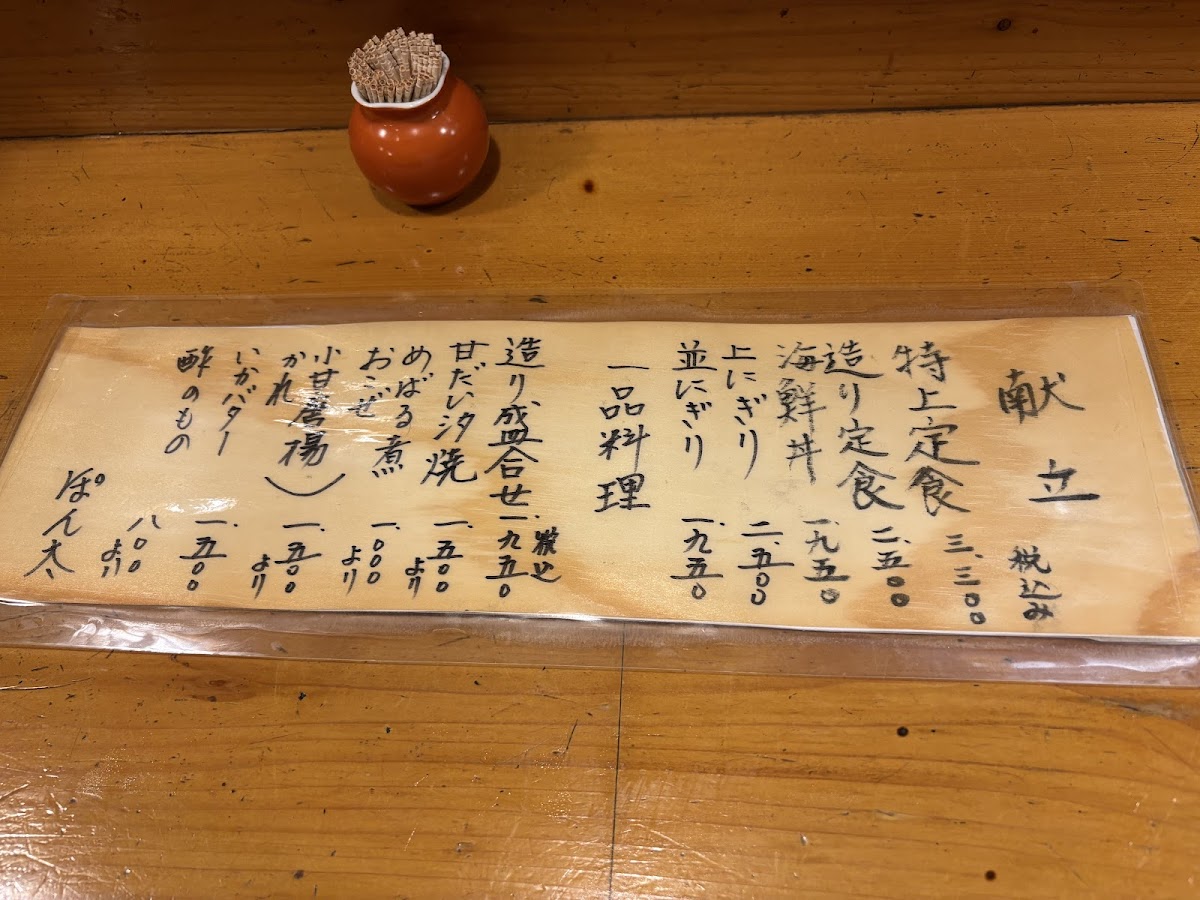 献立 税込み
特上定食 三、三〇〇
造り定食 二、五〇〇
海鮮丼 一、九五〇
上にぎり 二、五〇〇
並にぎり 一、九五〇
一品料理 税込
造り盛合せ 一、九五〇
甘だい汐焼 一、五〇〇より
めばる煮
おこぜ 一、〇〇〇より
小甘唐揚
かれ 一、五〇〇より
いかバター 一、五〇〇
酢のもの 八〇〇より
ぽん太